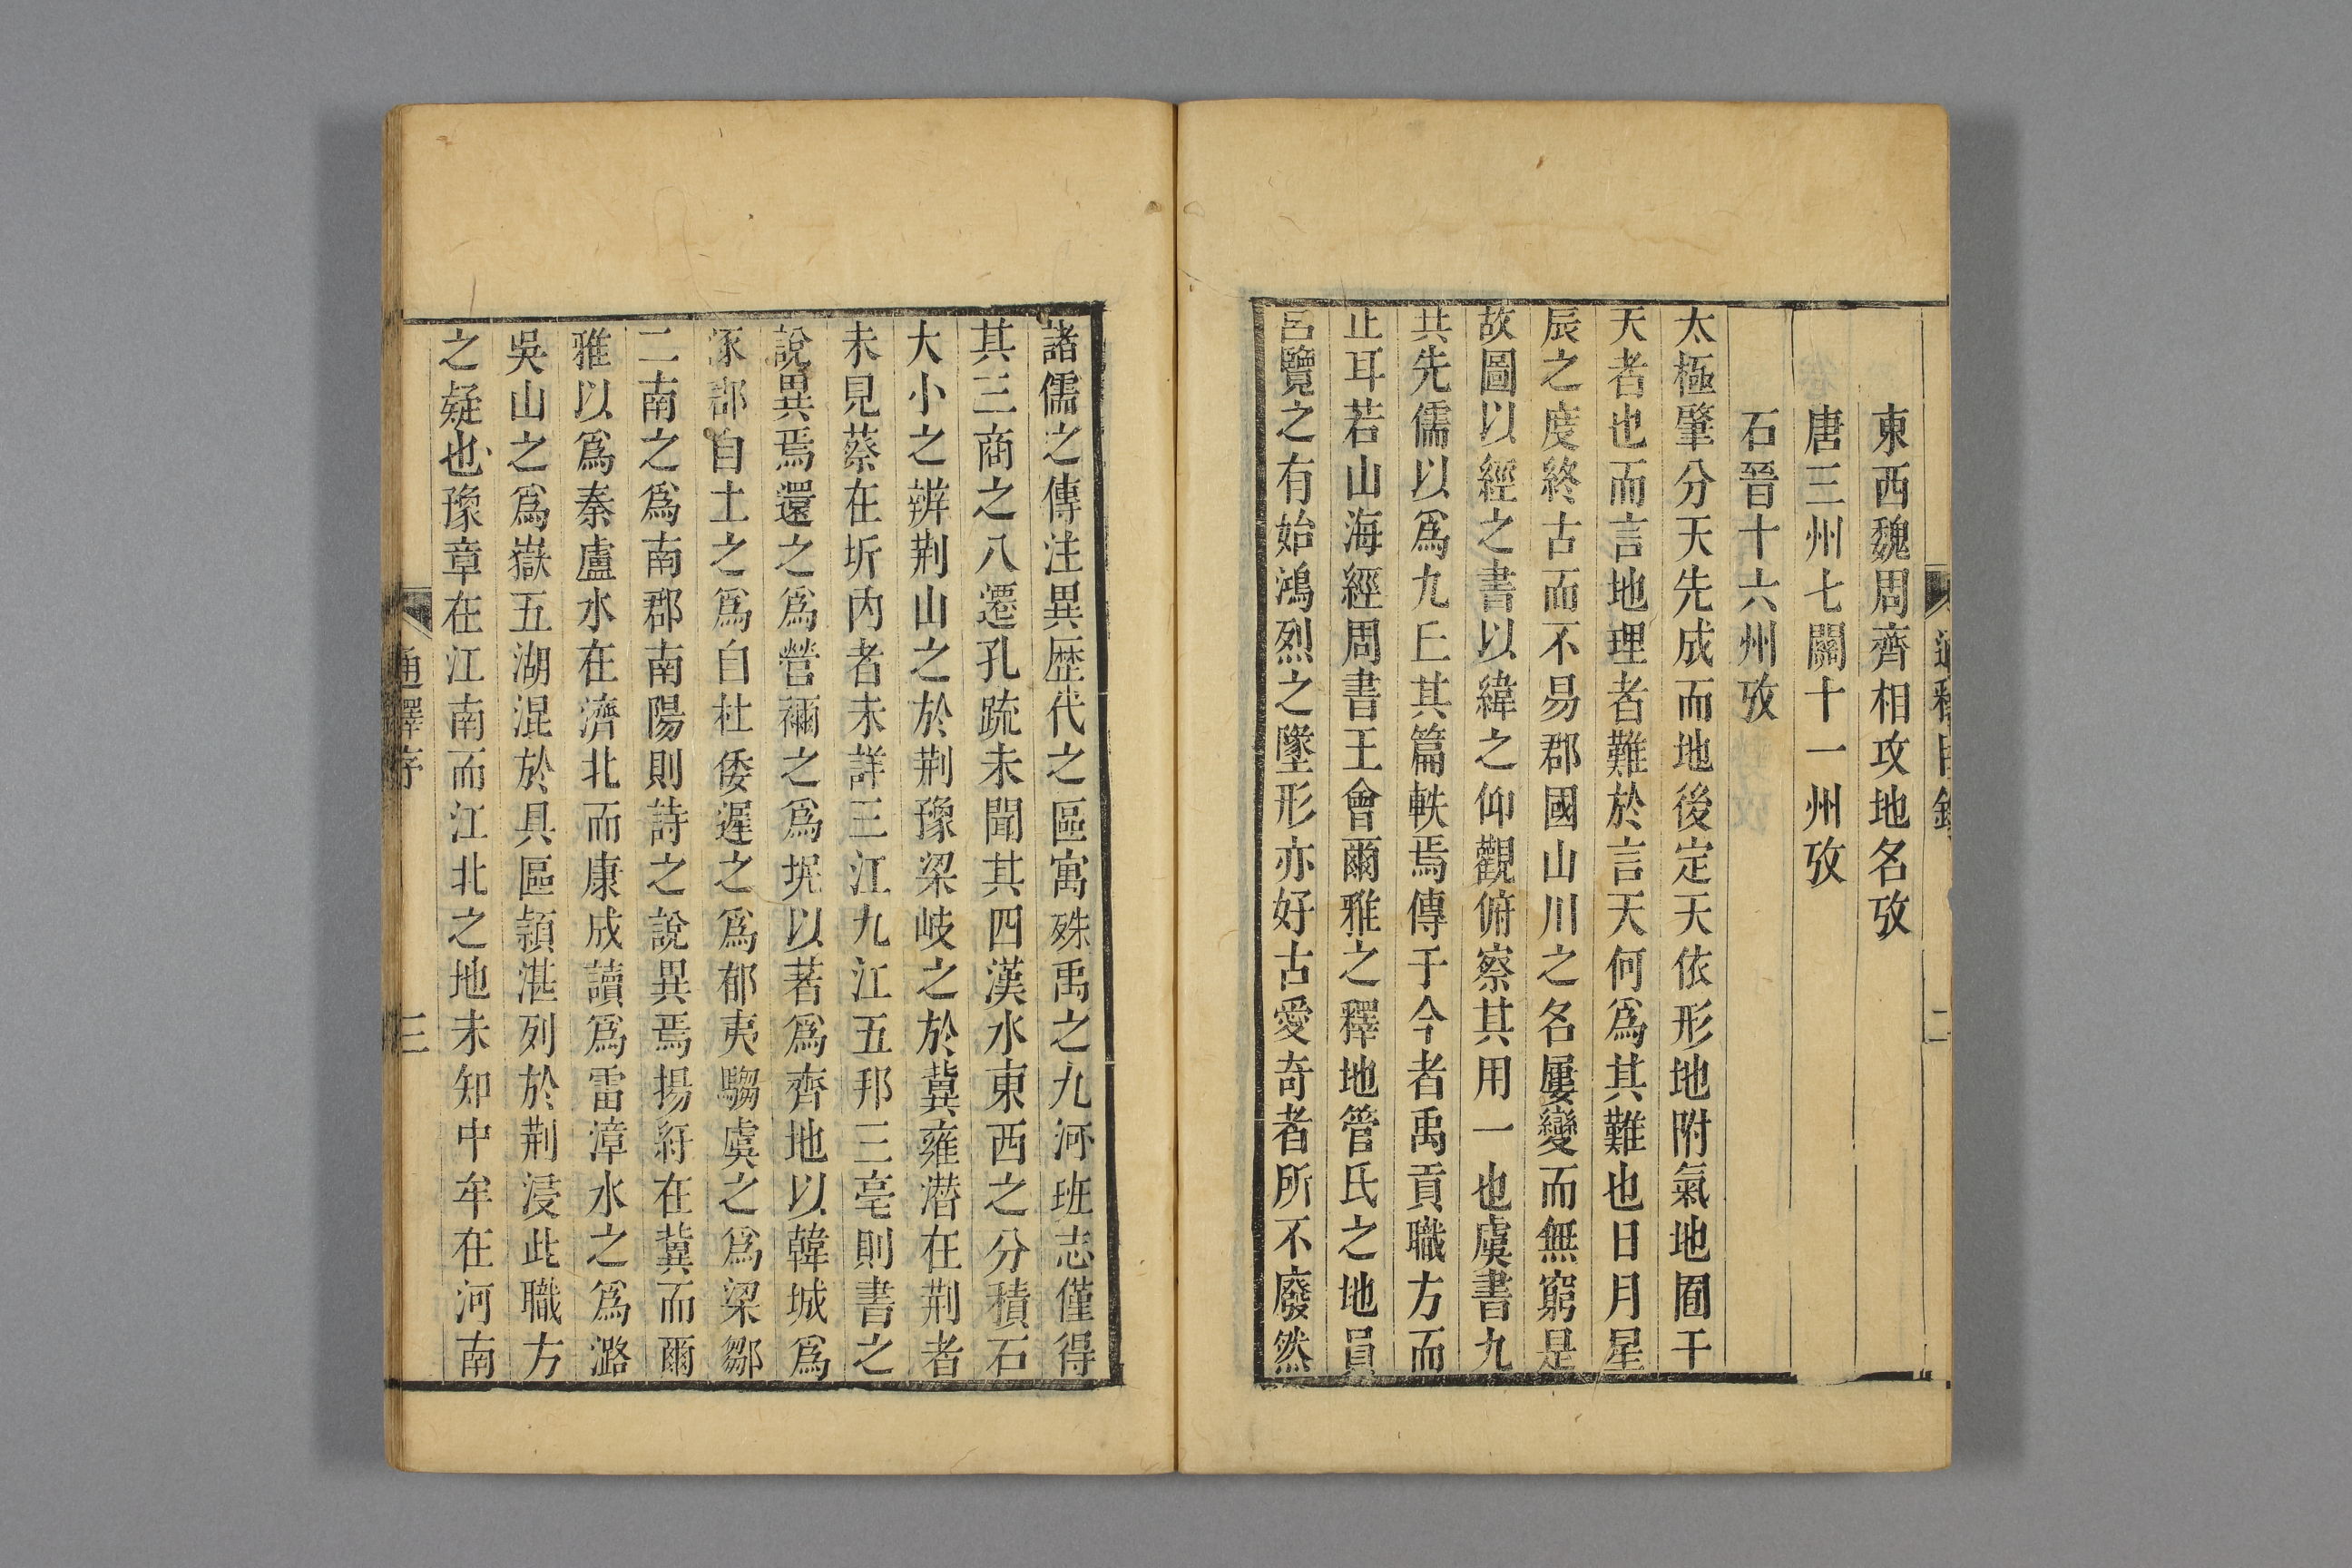 東西魏周齊相攻地名攷
唐三州七關十一州攷
石晉十六州攷
太極肇分天先成而地後定天依形地附氣地囿于
天者也而言地理者難於言天何爲其難也日月星
辰之度終古而不易郡國山川之名屢變而無窮是
故圖以經之書以緯之仰觀俯察其用一也虞書九
共先儒以爲九丘其篇軼焉傳于今者禹貢職方而
止耳若山海經周書王會爾雅之釋地管氏之地員
呂覽之有始鴻烈之墬形亦好古愛奇者所不廢然
諸儒之傳注異歷代之區寓殊禹之九河班志僅得
其三商之八遷孔疏未聞其四漢水東西之分積石
大小之辨荆山之於荆豫梁岐之於冀雍潜在荆者
未見蔡在圻內者未詳三江九江五邦三亳則書之
說異焉還之爲營禰之爲坭以著爲齊地以韓城爲
涿郡自土之爲自杜倭遲之爲郁夷騶虞之爲梁鄒
二南之爲南郡南陽則詩之說異焉揚紆在冀而爾
雅以爲秦盧水在濟北而康成讀爲雷漳水之爲潞
吳山之爲嶽五湖混於具區頴湛列於荆浸此職方
之疑也豫章在江南而江北之地未知中牟在河南
通釋序 三